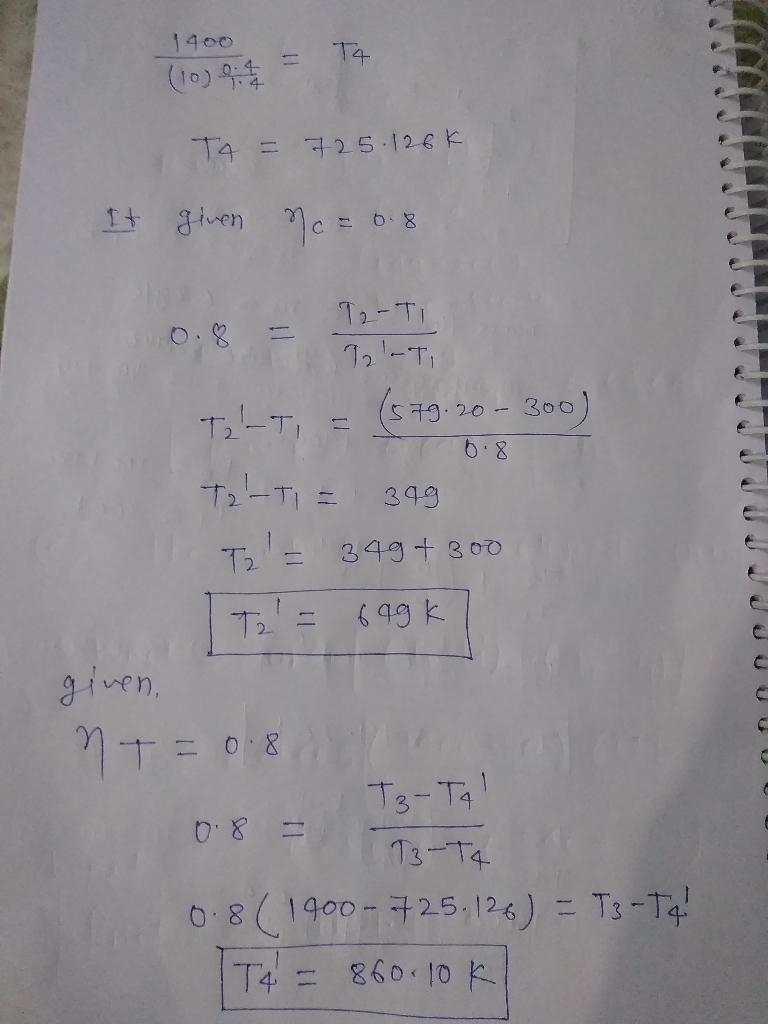 1400 / (10)^(0.4/1.4) = T4
T4 = 725.126 K
It given ηc = 0.8
0.8 = (T2-T1) / (T2'-T1)
T2'-T1 = (579.20 - 300) / 0.8
T2'-T1 = 349
T2' = 349 + 300
T2' = 649 K
given,
ηT = 0.8
0.8 = (T3-T4') / (T3-T4)
0.8 (1400 - 725.126) = T3-T4'
T4' = 860.10 K